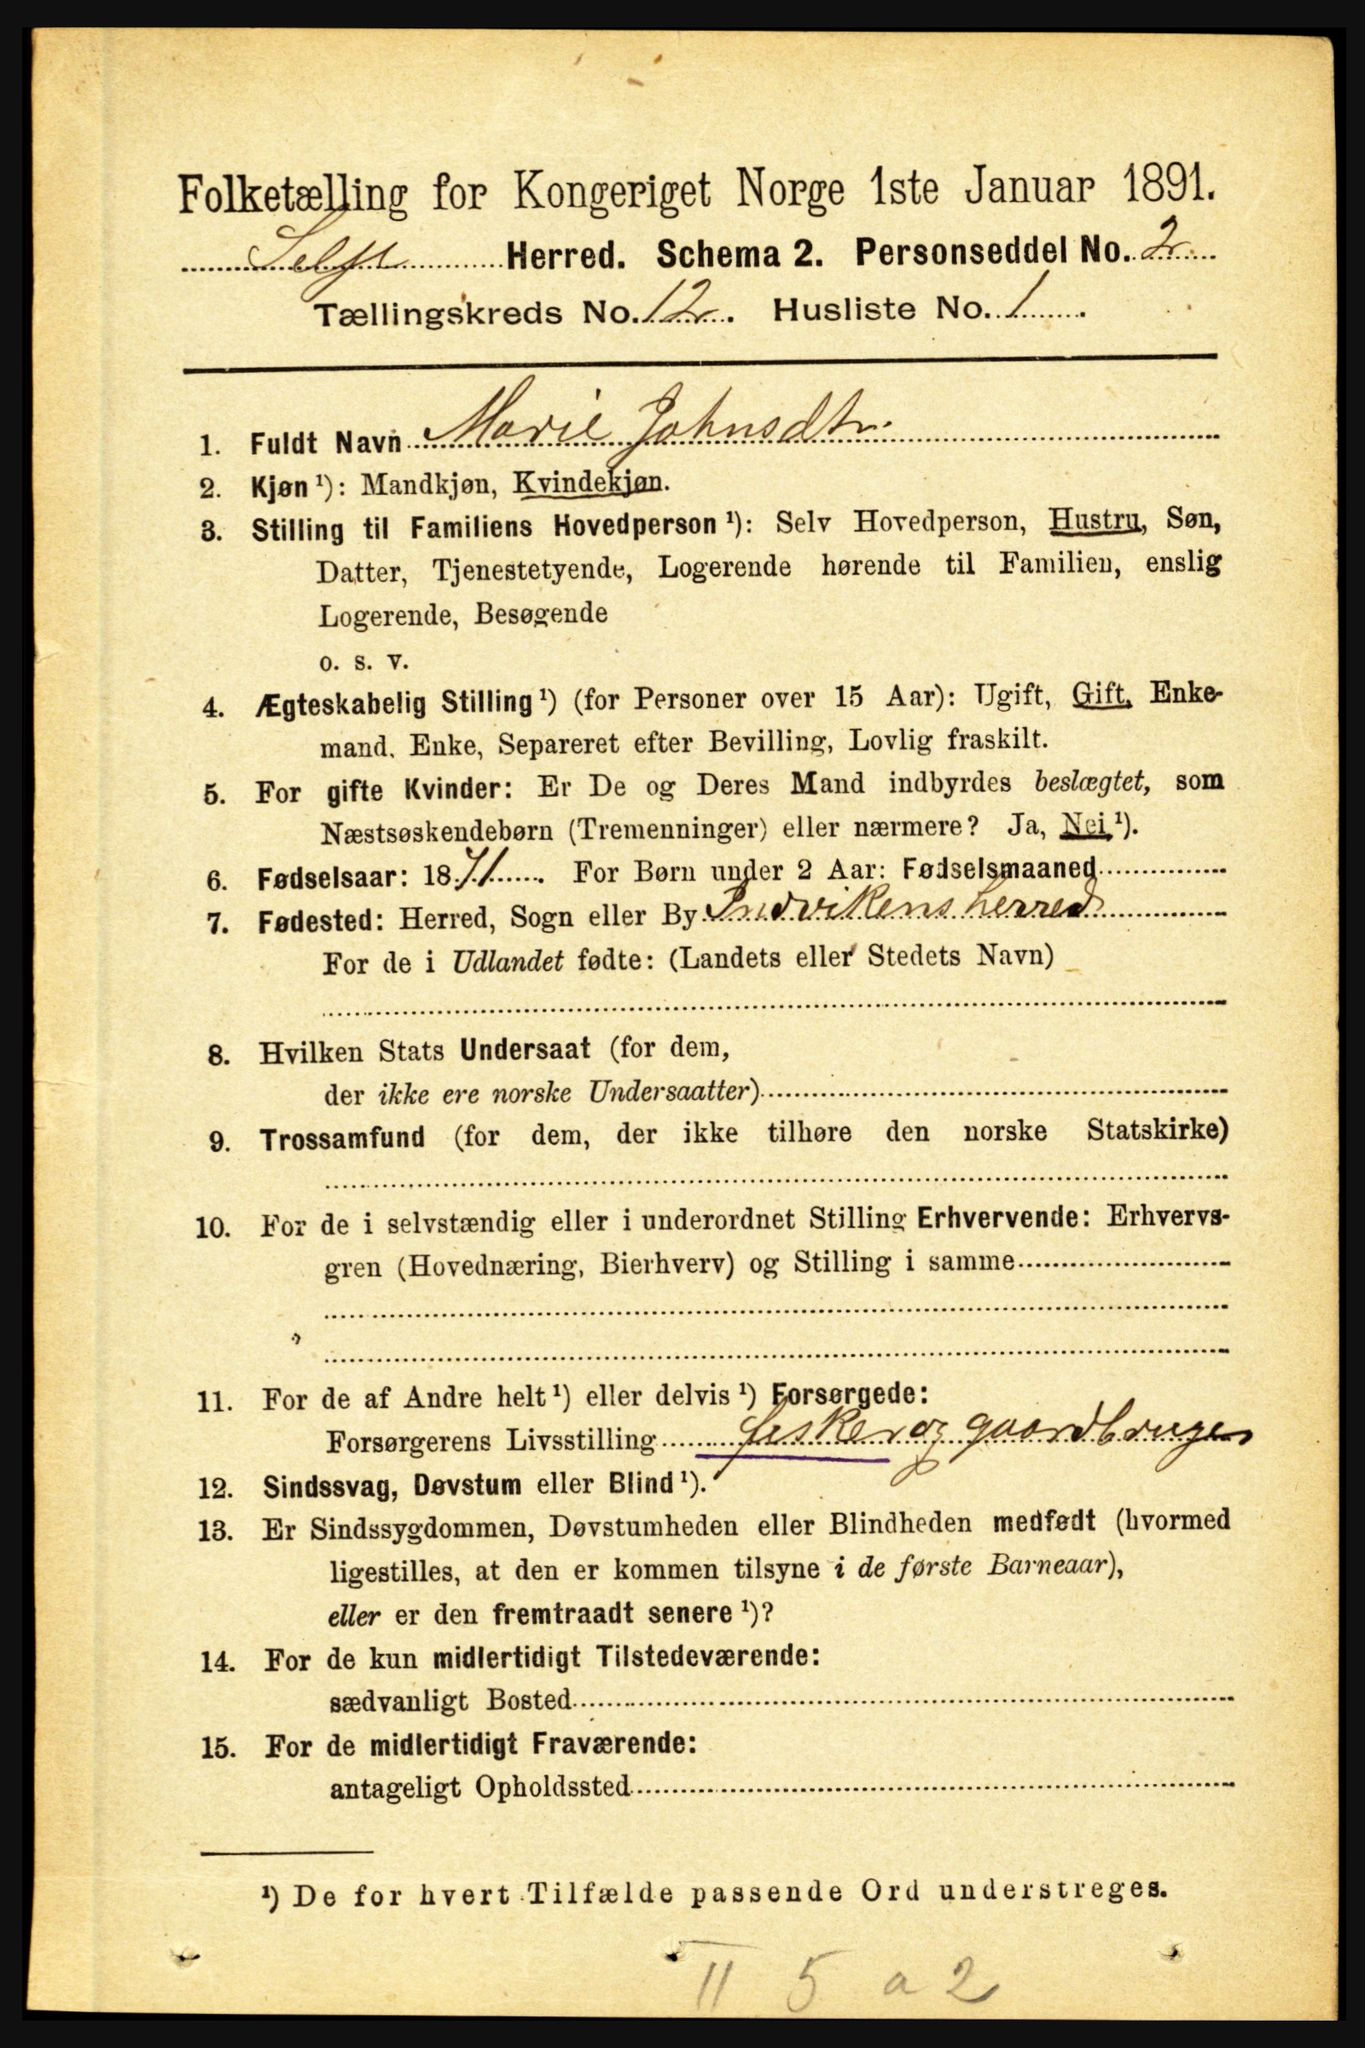 Folketælling for Kongeriget Norge 1ste Januar 1891.
Selje Herred. Schema 2. Personseddel No. 2
Tællingskreds No. 12. Husliste No. 1.
1. Fuldt Navn Marie Johnsdtr.
2. Kjøn ¹): Mandkjøn, Kvindekjøn.
3. Stilling til Familiens Hovedperson ¹): Selv Hovedperson, Hustru, Søn,
Datter, Tjenestetyende, Logerende hørende til Familien, enslig
Logerende, Besøgende
o. s. v.
4. Ægteskabelig Stilling ¹) (for Personer over 15 Aar): Ugift, Gift, Enke-
mand, Enke, Separeret efter Bevilling, Lovlig fraskilt.
5. For gifte Kvinder: Er De og Deres Mand indbyrdes beslægtet, som
Næstsøskendebørn (Tremenninger) eller nærmere? Ja, Nei ¹).
6. Fødselsaar: 1871. For Børn under 2 Aar: Fødselsmaaned
7. Fødested: Herred, Sogn eller By Indvikens herred
For de i Udlandet fødte: (Landets eller Stedets Navn)
8. Hvilken Stats Undersaat (for dem,
der ikke ere norske Undersaatter)
9. Trossamfund (for dem, der ikke tilhøre den norske Statskirke)
10. For de i selvstændig eller i underordnet Stilling Erhvervende: Erhvervs-
gren (Hovednæring, Bierhverv) og Stilling i samme
11. For de af Andre helt ¹) eller delvis ¹) Forsørgede:
Forsørgerens Livsstilling fisker og gaardbruger
12. Sindssvag, Døvstum eller Blind ¹).
13. Er Sindssygdommen, Døvstumheden eller Blindheden medfødt (hvormed
ligestilles, at den er kommen tilsyne i de første Barneaar),
eller er den fremtraadt senere ¹)?
14. For de kun midlertidigt Tilstedeværende:
sædvanligt Bosted
15. For de midlertidigt Fraværende:
antageligt Opholdssted
¹) De for hvert Tilfælde passende Ord understreges.
II 5 a 2